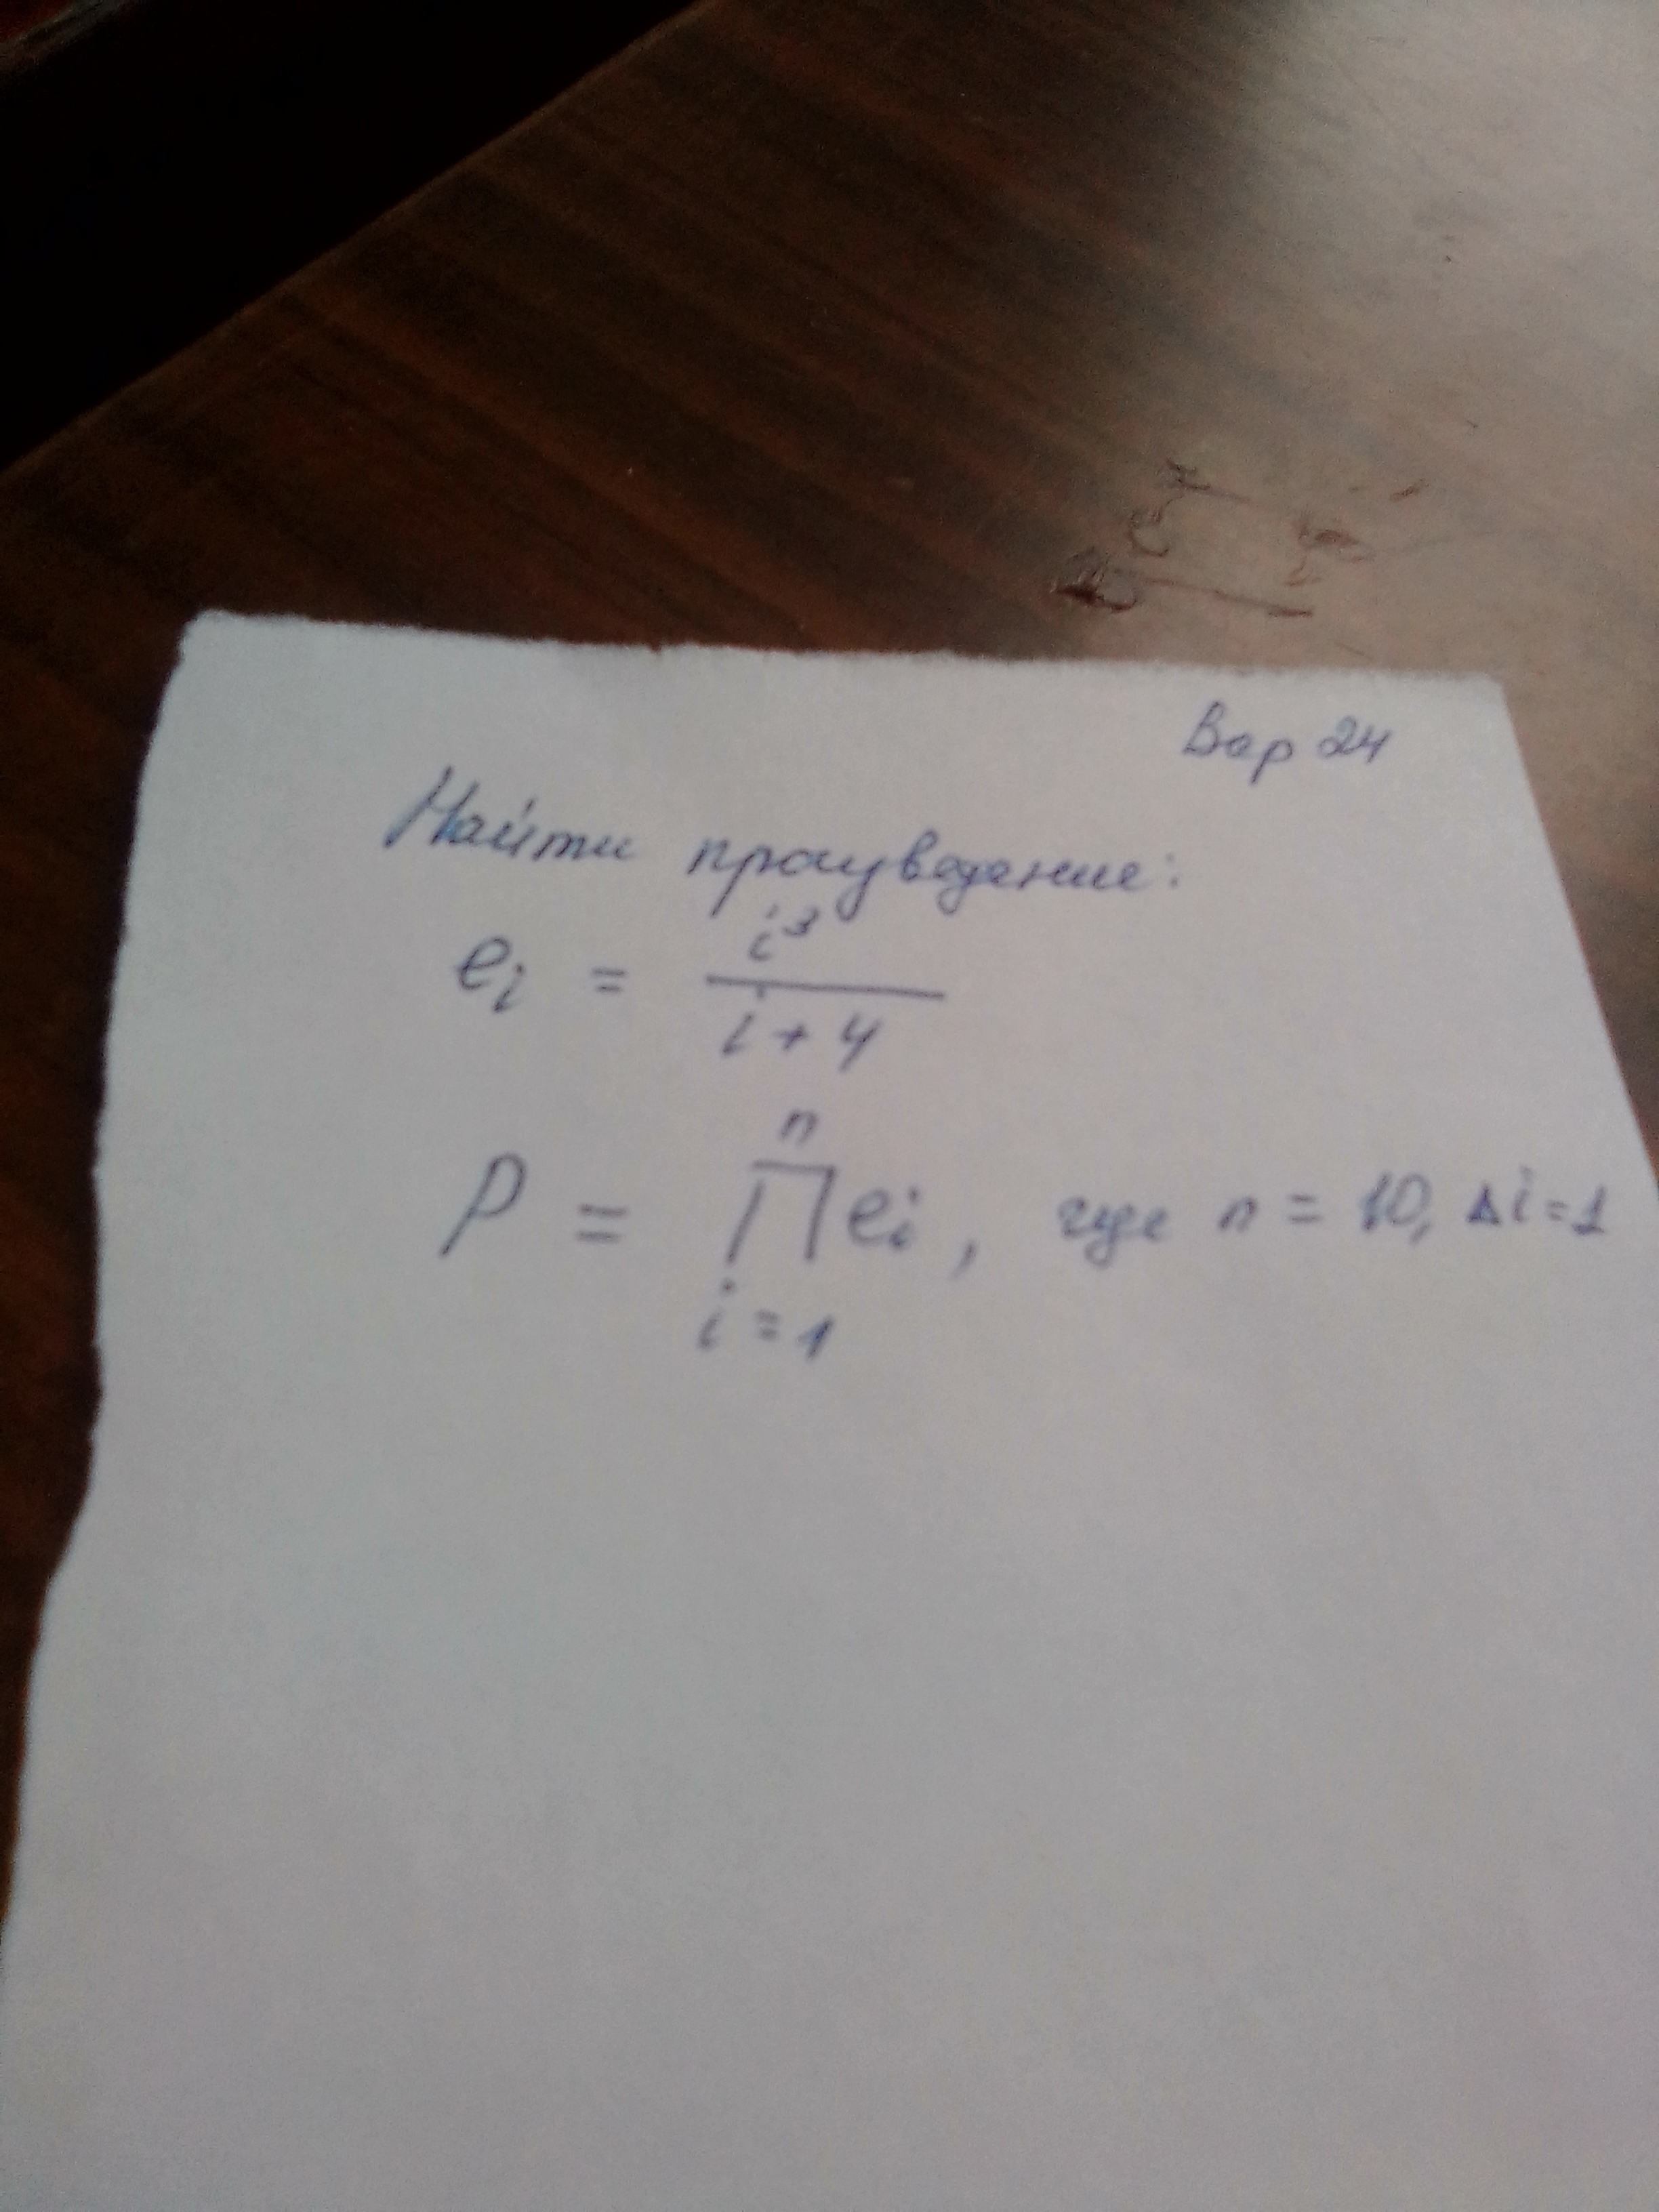 Вар 24
Найти произведение:
eᵢ = i³ / (i + 4)
n
P = ∏ eᵢ, где n = 10, Δi = 1
i = 1